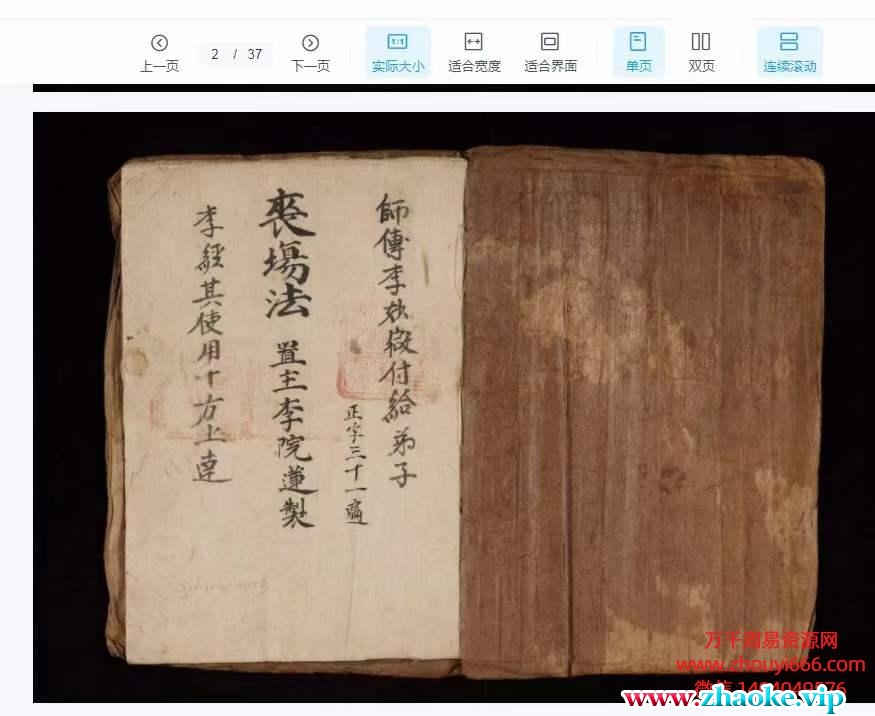 上一页
2 / 37
下一页
1:1
实际大小
适合宽度
适合界面
单页
双页
连续滚动
師傳李
付給弟子
正字三十一遍
喪塲法
置主李院蓮製
李經其使用十方上達
万千周易资源网
www.zhouyi666.com
www.zhaoke.vip